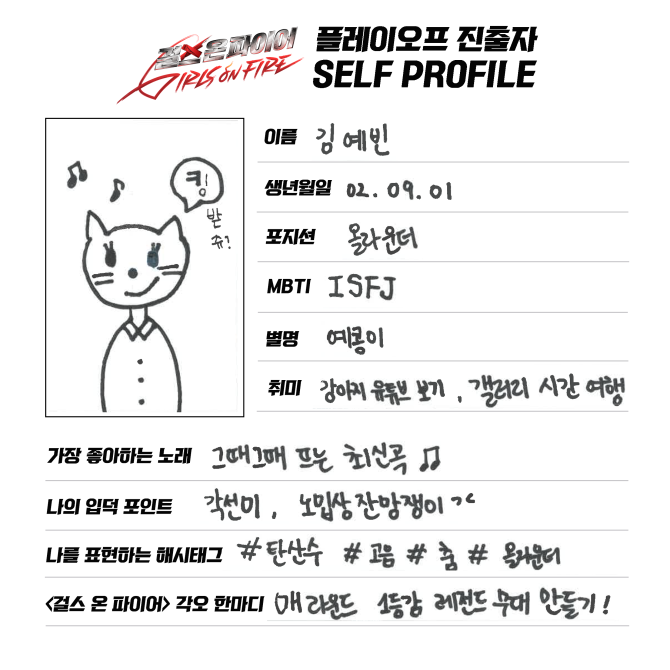 걸스 온 파이어 플레이오프 진출자
GIRLS ON FIRE SELF PROFILE
킹
받
쥬?
이름 김예빈
생년월일 02. 09. 01
포지션 올라운더
MBTI ISFJ
별명 예콩이
취미 강아지 유튜브 보기, 갤러리 시간 여행
가장 좋아하는 노래 그때그때 뜨는 최신곡 ♫
나의 입덕 포인트 각선미, 노밉상 잔망쟁이 ㄱㄴ
나를 표현하는 해시태그 #탄산수 #고음 #춤 #올라운더
<걸스 온 파이어> 각오 한마디 매 라운드 1등감 레전드 무대 만들기!